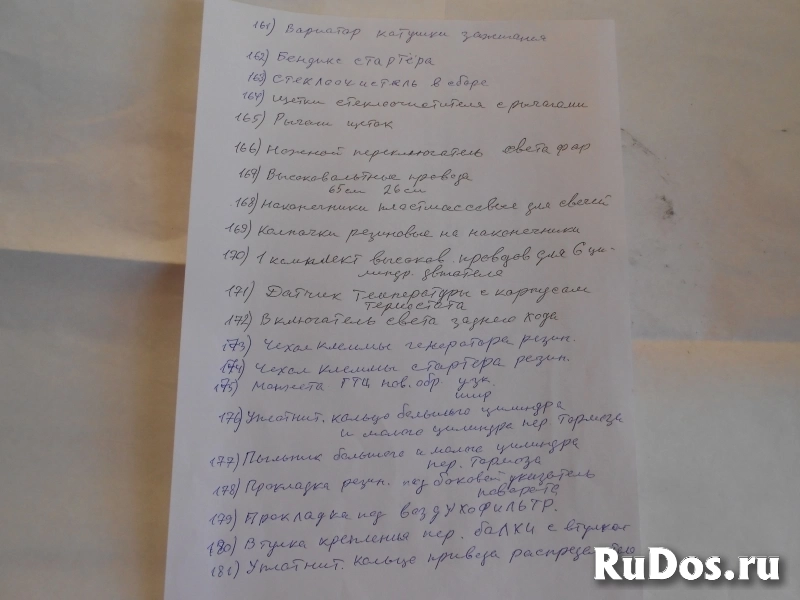 161) Вариатор катушки зажигания
162) Бендикс стартёра
163) Стеклоочистель в сборе
164) Щетки стеклоочистителя с рычагами
165) Рычаги щеток
166) Ножной переключатель света фар
167) Высоковальтные провода
65см 26см
168) Наконечники пластмассовые для свечей
169) Колпачки резиновые на наконечники
170) 1 комплект высоков. проводов для 6 ци-
линдр. двигателя
171) Датчик температуры с карпусам
термостата
172) Включатель света заднего хода
173) Чехол клеммы генератора резин.
174) Чехол клеммы стартера резин.
175) Манжета ГТЦ нов. обр узк.
шир
176) Уплотнит. кольцо большого цилиндра
и малого цилиндра пер тормоза
177) Пыльник большого и малого цилиндра
пер. тормоза
178) Прокладка резин. под боковой указатель
поворота
179) Прокладка под воздухофильтр.
180) Втулка крепленья пер. балки с втулкой
181) Уплотнит. кольцо привода
RuDos.ru